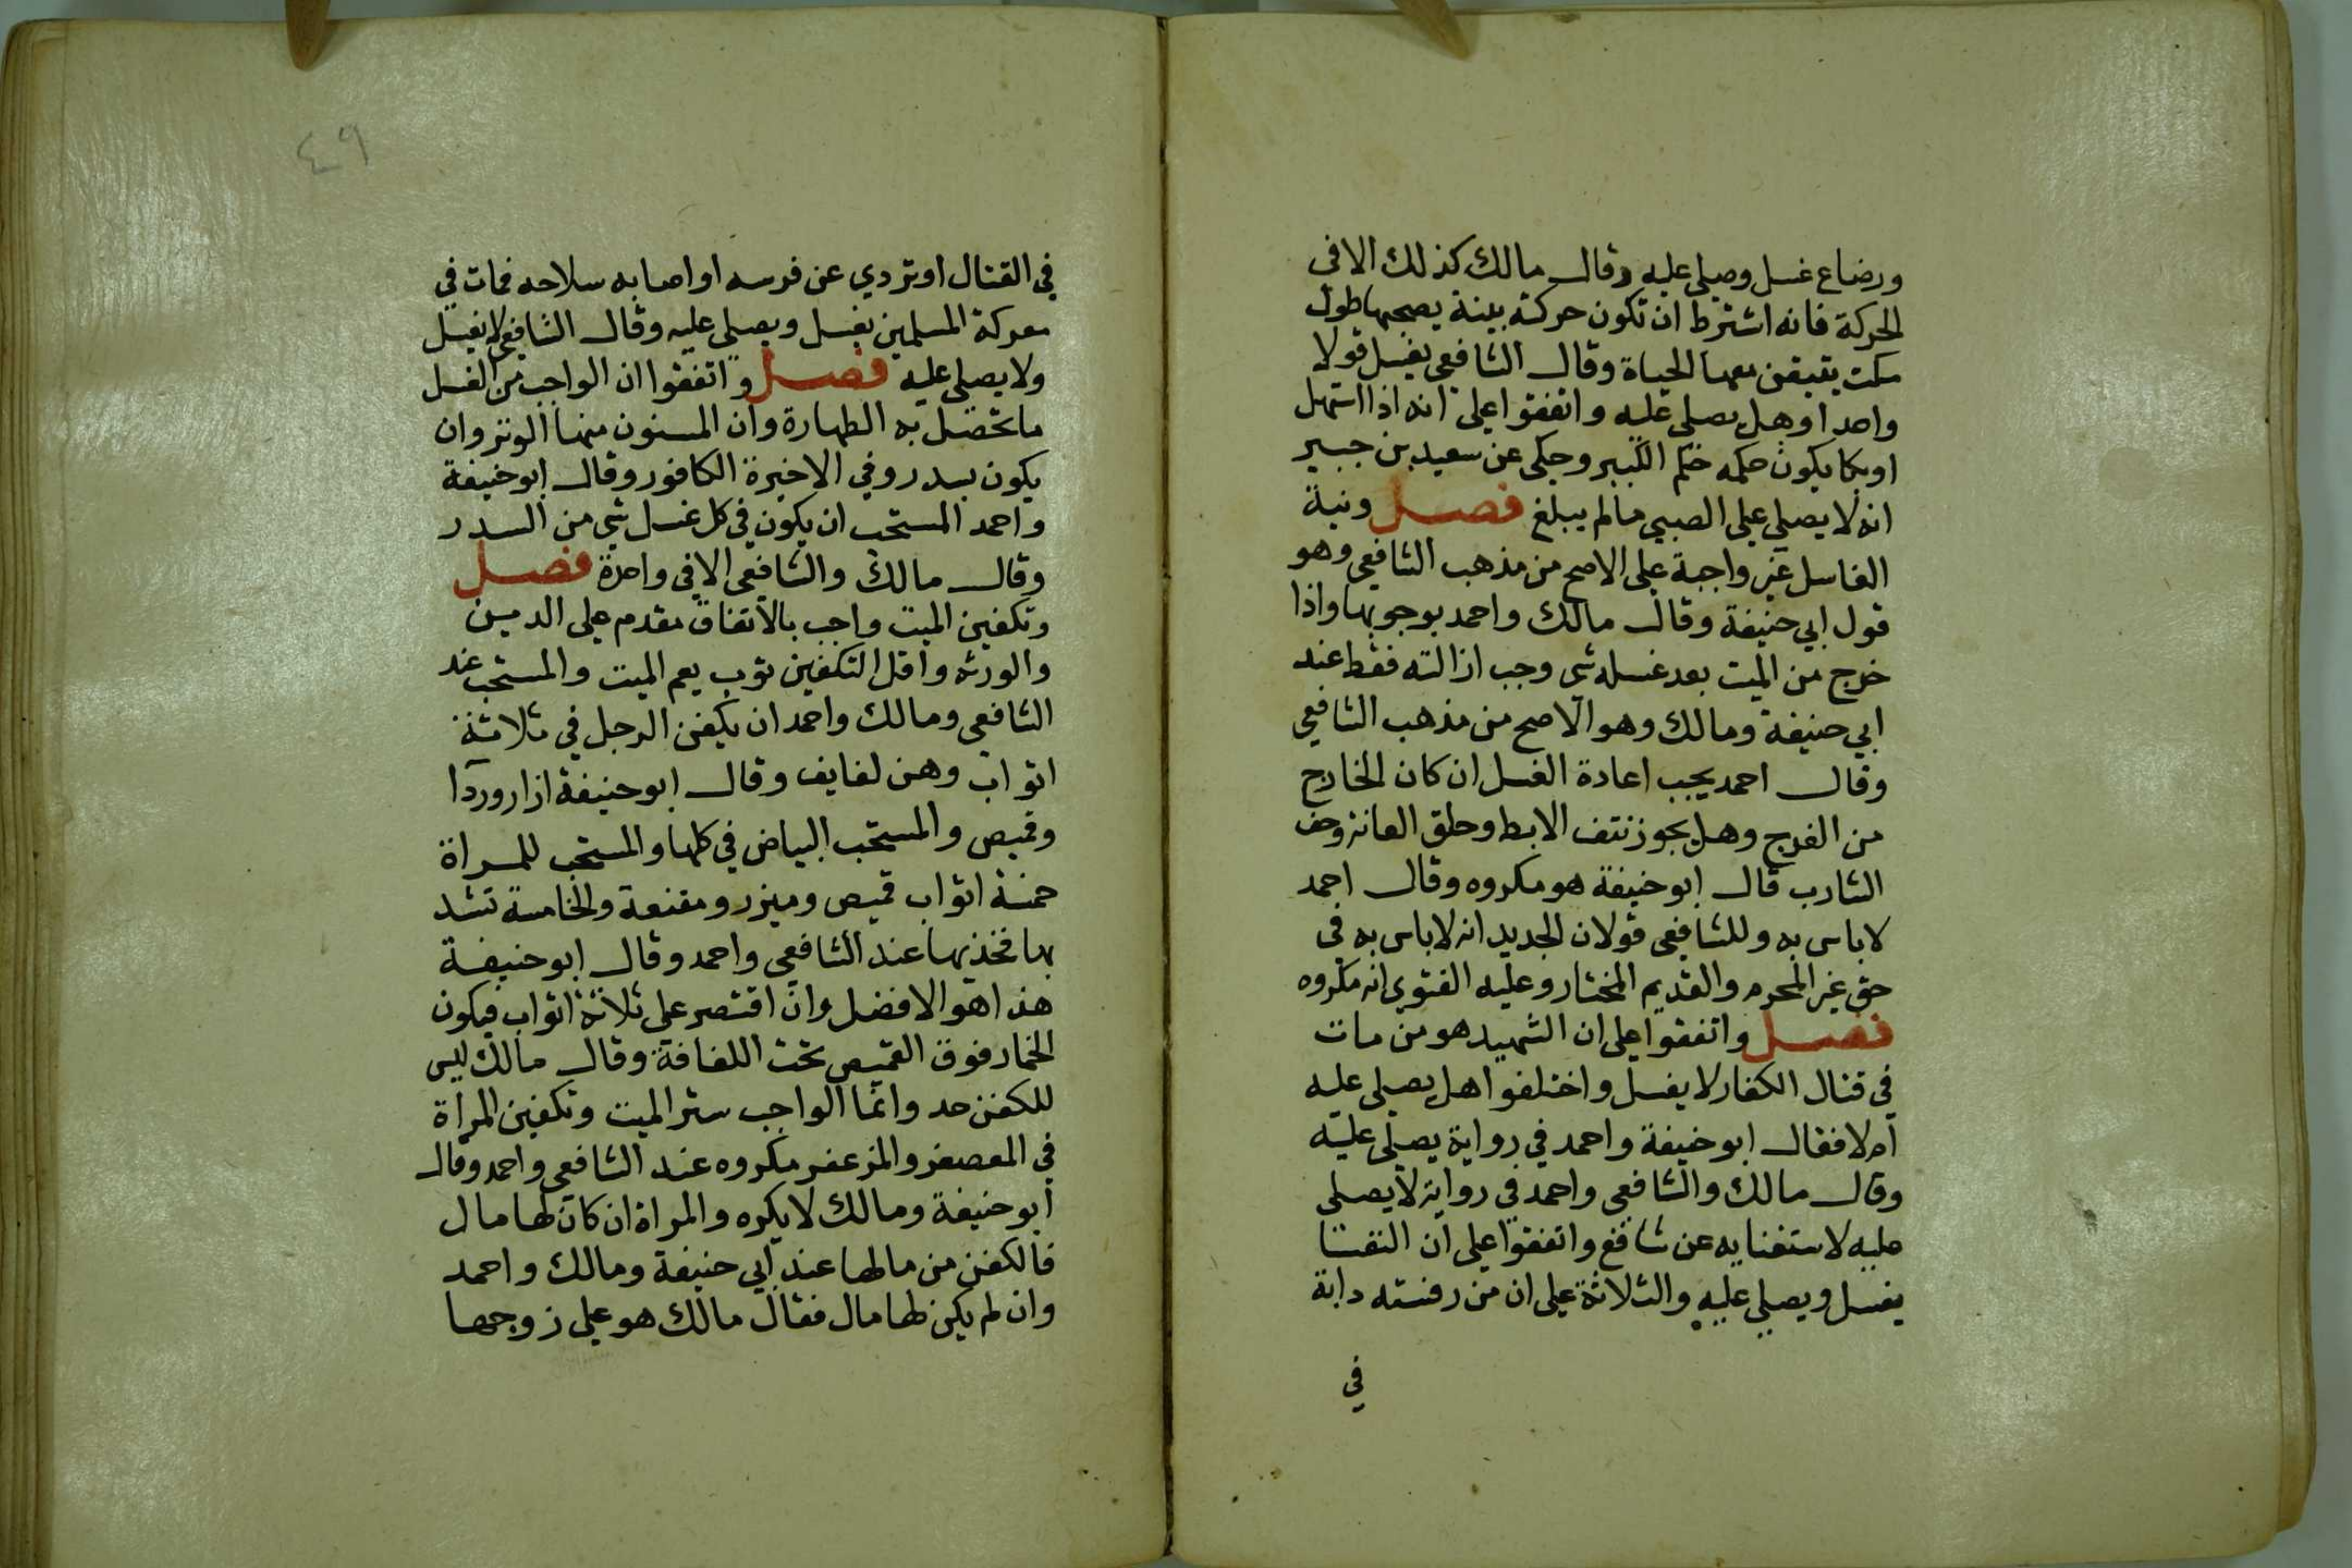 ورضاع غسل وصلى عليه وقال مالك كذلك الا في
الحركة فانه اشترط ان تكون حركة بينة يصحبها طول
مكت يتيقن معها الحياة وقال الشافعي يغسل قولا
واحدا وهل يصلى عليه واتفقوا على انه اذا استهل
او بكا يكون حكمه حكم الكبير وحكى عن سعيد بن جبير
انه لا يصلي على الصبي ما لم يبلغ فصل ونية
الغاسل غير واجبة على الاصح من مذهب الشافعي وهو
قول ابي حنيفة وقال مالك واحمد بوجوبها واذا
خرج من الميت بعد غسله شي وجب ازالته فقط عند
ابي حنيفة ومالك وهو الاصح من مذهب الشافعي
وقال احمد يجب اعادة الغسل ان كان الخارج
من الفرج وهل يجوز نتف الابط وحلق العانة وحف
الشارب قال ابو حنيفة هو مكروه وقال احمد
لا باس به وللشافعي قولان الجديد انه لا باس به في
حق غير المحرم والقديم المختار وعليه الفتوي انه مكروه
فصل واتفقوا على ان الشهيد هو من مات
في قتال الكفار لا يغسل واختلفوا هل يصلى عليه
ام لا فقال ابو حنيفة واحمد في رواية يصلى عليه
وقال مالك والشافعي واحمد في رواية لا يصلى
عليه لاستغنايه عن شافع واتفقوا على ان النفسا
يغسل ويصلي عليه والثلاثة على ان من رفسته دابة
في
٤٩
في القتال او تردي عن فرسه او اصابه سلاحه فمات في
معركة المسلمين يغسل ويصلى عليه وقال الشافعي لا يغسل
ولا يصلى عليه فصل واتفقوا ان الواجب من الغسل
ما تحصل به الطهارة وان المسنون منها الوتر وان
يكون بسدر وفي الاخيرة الكافور وقال ابو حنيفة
واحمد المستحب ان يكون في كل غسل شي من السدر
وقال مالك والشافعي الا في واحدة فصل
وتكفين الميت واجب بالاتفاق مقدم على الدين
والورثه واقل التكفين ثوب يعم الميت والمستحب عند
الشافعي ومالك واحمد ان يكفن الرجل في ثلاثة
اثواب وهن لفايف وقال ابو حنيفة ازار وردا
وقميص والمستحب البياض في كلها والمستحب للمراة
خمسة اثواب قميص وميزر ومقنعة والخامسة تشد
بها فخذيها عند الشافعي واحمد وقال ابو حنيفة
هذا هو الافضل وان اقتصر على ثلاثة اثواب فيكون
الخمار فوق القميص تحت اللفافة وقال مالك ليس
للكفن حد وانما الواجب ستر الميت وتكفين المراة
في المعصفر والمزعفر مكروه عند الشافعي واحمد وقال
ابو حنيفة ومالك لا يكره والمراة ان كان لها مال
فالكفن من مالها عند ابي حنيفة ومالك واحمد
وان لم يكن لها مال فقال مالك هو على زوجها